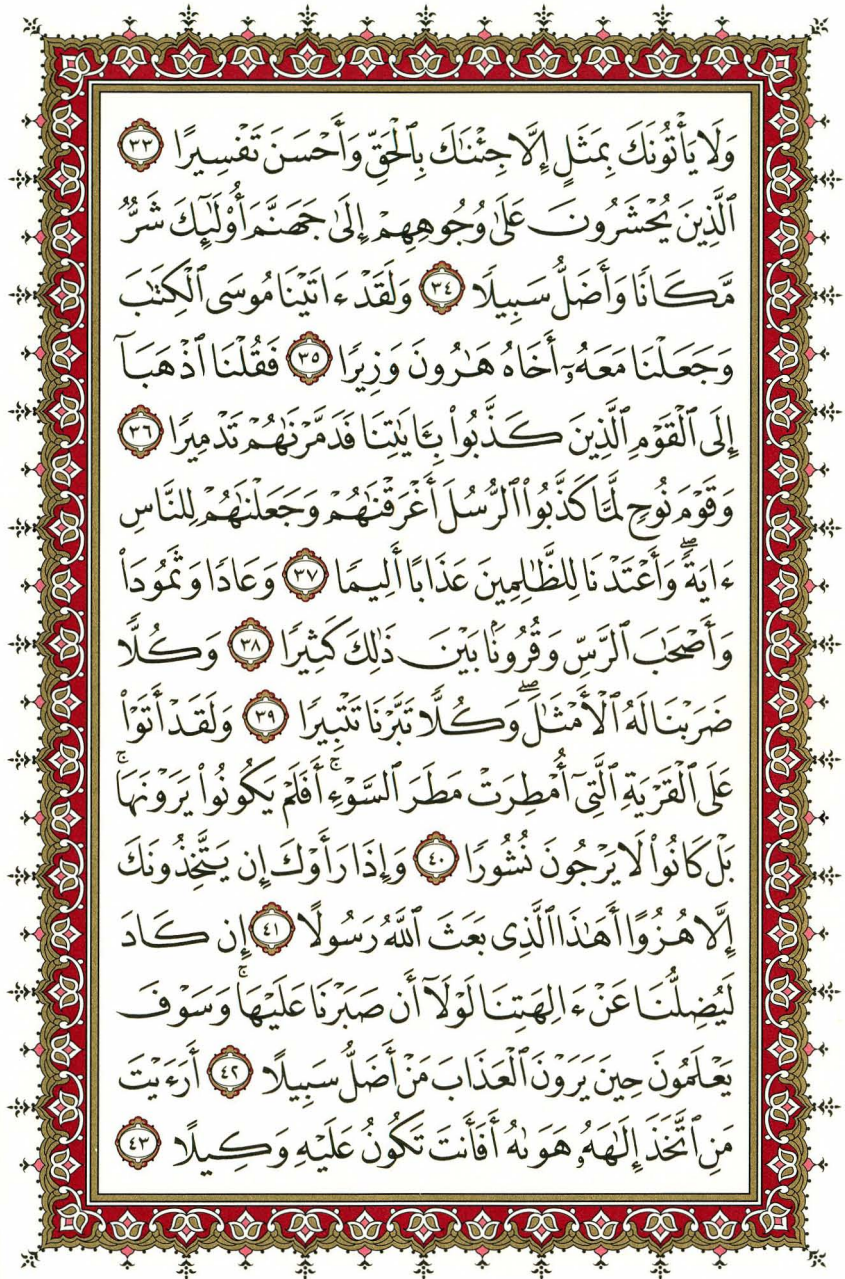 وَلَا يَأْتُونَكَ بِمَثَلٍ إِلَّا جِئْنَٰكَ بِٱلْحَقِّ وَأَحْسَنَ تَفْسِيرًا ٣٣
ٱلَّذِينَ يُحْشَرُونَ عَلَىٰ وُجُوهِهِمْ إِلَىٰ جَهَنَّمَ أُو۟لَٰٓئِكَ شَرٌّ
مَّكَانًا وَأَضَلُّ سَبِيلًا ٣٤ وَلَقَدْ ءَاتَيْنَا مُوسَى ٱلْكِتَٰبَ
وَجَعَلْنَا مَعَهُۥٓ أَخَاهُ هَٰرُونَ وَزِيرًا ٣٥ فَقُلْنَا ٱذْهَبَآ
إِلَى ٱلْقَوْمِ ٱلَّذِينَ كَذَّبُوا۟ بِـَٔايَٰتِنَا فَدَمَّرْنَٰهُمْ تَدْمِيرًا ٣٦
وَقَوْمَ نُوحٍ لَّمَّا كَذَّبُوا۟ ٱلرُّسُلَ أَغْرَقْنَٰهُمْ وَجَعَلْنَٰهُمْ لِلنَّاسِ
ءَايَةً ۖ وَأَعْتَدْنَا لِلظَّٰلِمِينَ عَذَابًا أَلِيمًا ٣٧ وَعَادًا وَثَمُودَا۟
وَأَصْحَٰبَ ٱلرَّسِّ وَقُرُونًۢا بَيْنَ ذَٰلِكَ كَثِيرًا ٣٨ وَكُلًّا
ضَرَبْنَا لَهُ ٱلْأَمْثَٰلَ ۖ وَكُلًّا تَبَّرْنَا تَتْبِيرًا ٣٩ وَلَقَدْ أَتَوْا۟
عَلَى ٱلْقَرْيَةِ ٱلَّتِىٓ أُمْطِرَتْ مَطَرَ ٱلسَّوْءِ ۚ أَفَلَمْ يَكُونُوا۟ يَرَوْنَهَا ۚ
بَلْ كَانُوا۟ لَا يَرْجُونَ نُشُورًا ٤٠ وَإِذَا رَأَوْكَ إِن يَتَّخِذُونَكَ
إِلَّا هُزُوًا أَهَٰذَا ٱلَّذِى بَعَثَ ٱللَّهُ رَسُولًا ٤١ إِن كَادَ
لَيُضِلُّنَا عَنْ ءَالِهَتِنَا لَوْلَآ أَن صَبَرْنَا عَلَيْهَا ۚ وَسَوْفَ
يَعْلَمُونَ حِينَ يَرَوْنَ ٱلْعَذَابَ مَنْ أَضَلُّ سَبِيلًا ٤٢ أَرَءَيْتَ
مَنِ ٱتَّخَذَ إِلَٰهَهُۥ هَوَىٰهُ أَفَأَنتَ تَكُونُ عَلَيْهِ وَكِيلًا ٤٣